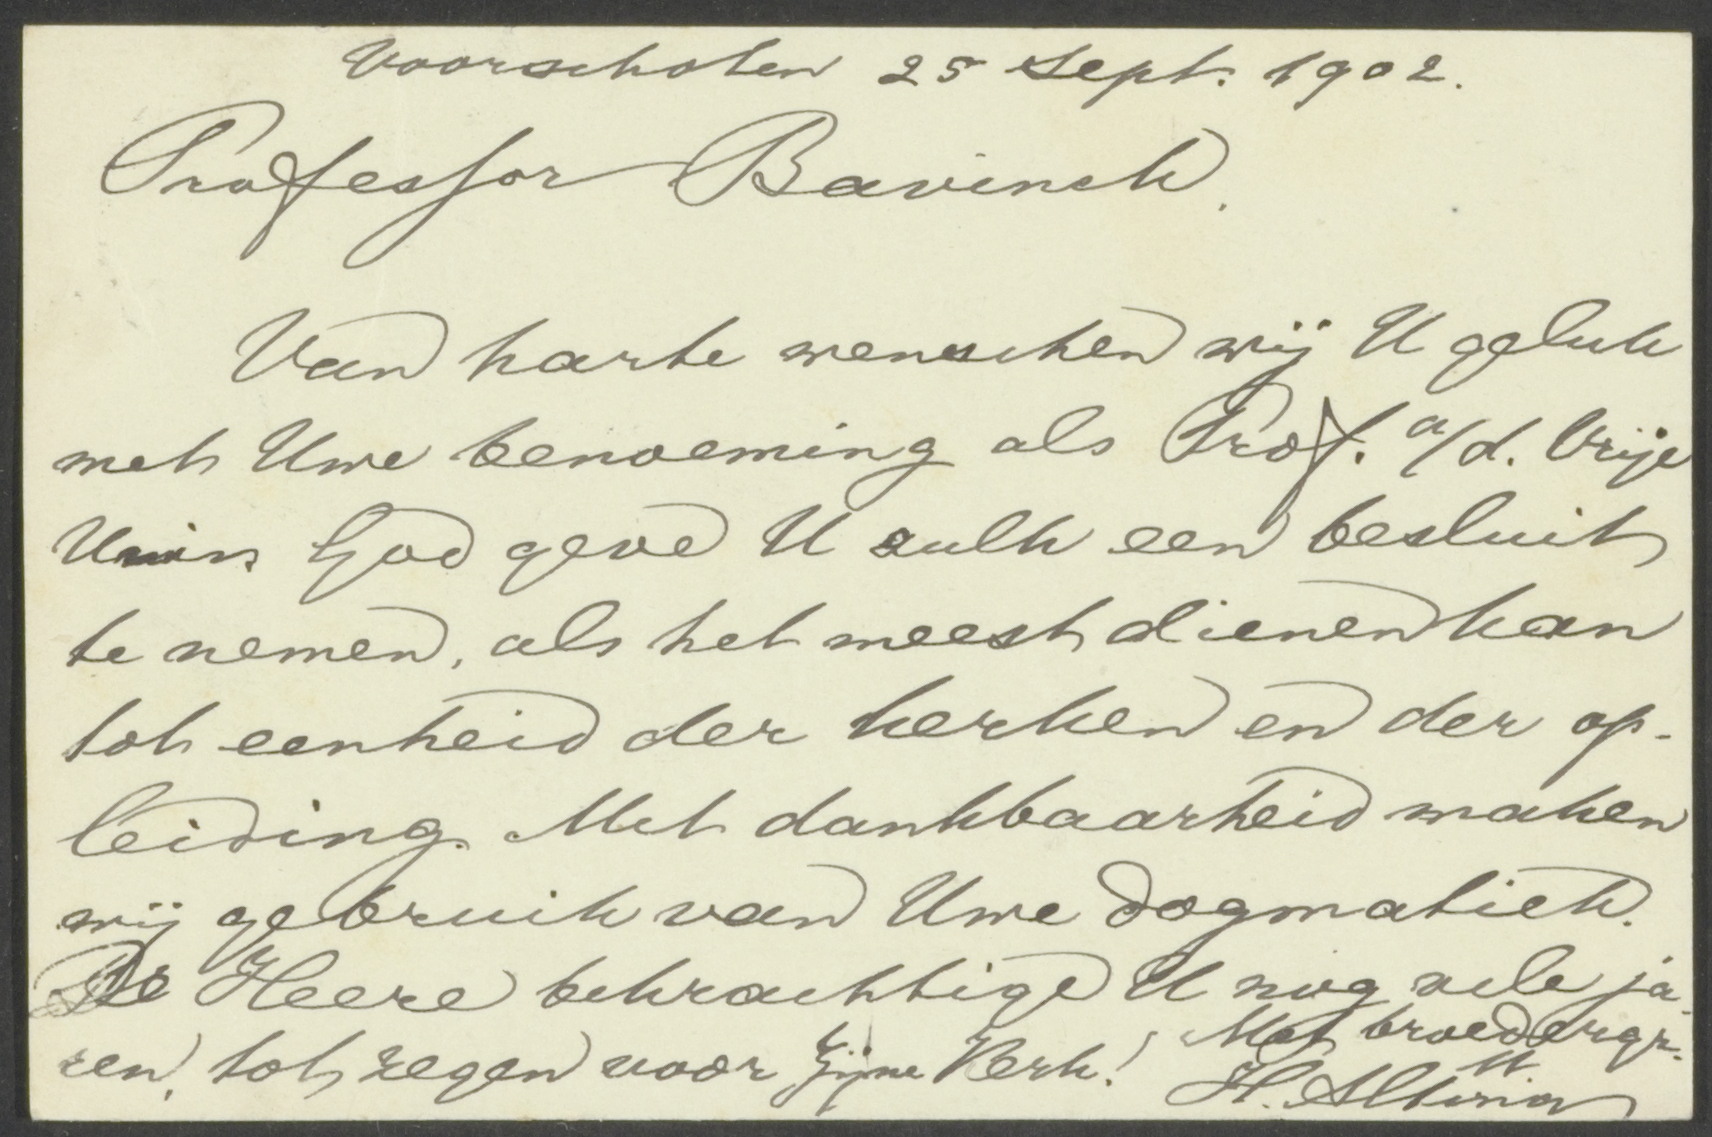 Voorschoten 25 Sept. 1902.
Professor Bavinck.
Van harte wenschen wij U geluk
met Uwe benoeming als Prof. a/d. Vrije
Univ. God geve U zulk een besluit
te nemen, als het meest dienen kan
tot eenheid der kerken en der op-
leiding. Met dankbaarheid maken
wij gebruik van Uwe Dogmatiek.
De Heere bekrachtige U nog vele ja-
ren, tot zegen voor Zijne Kerk!
Met broedergr.
H. Alting